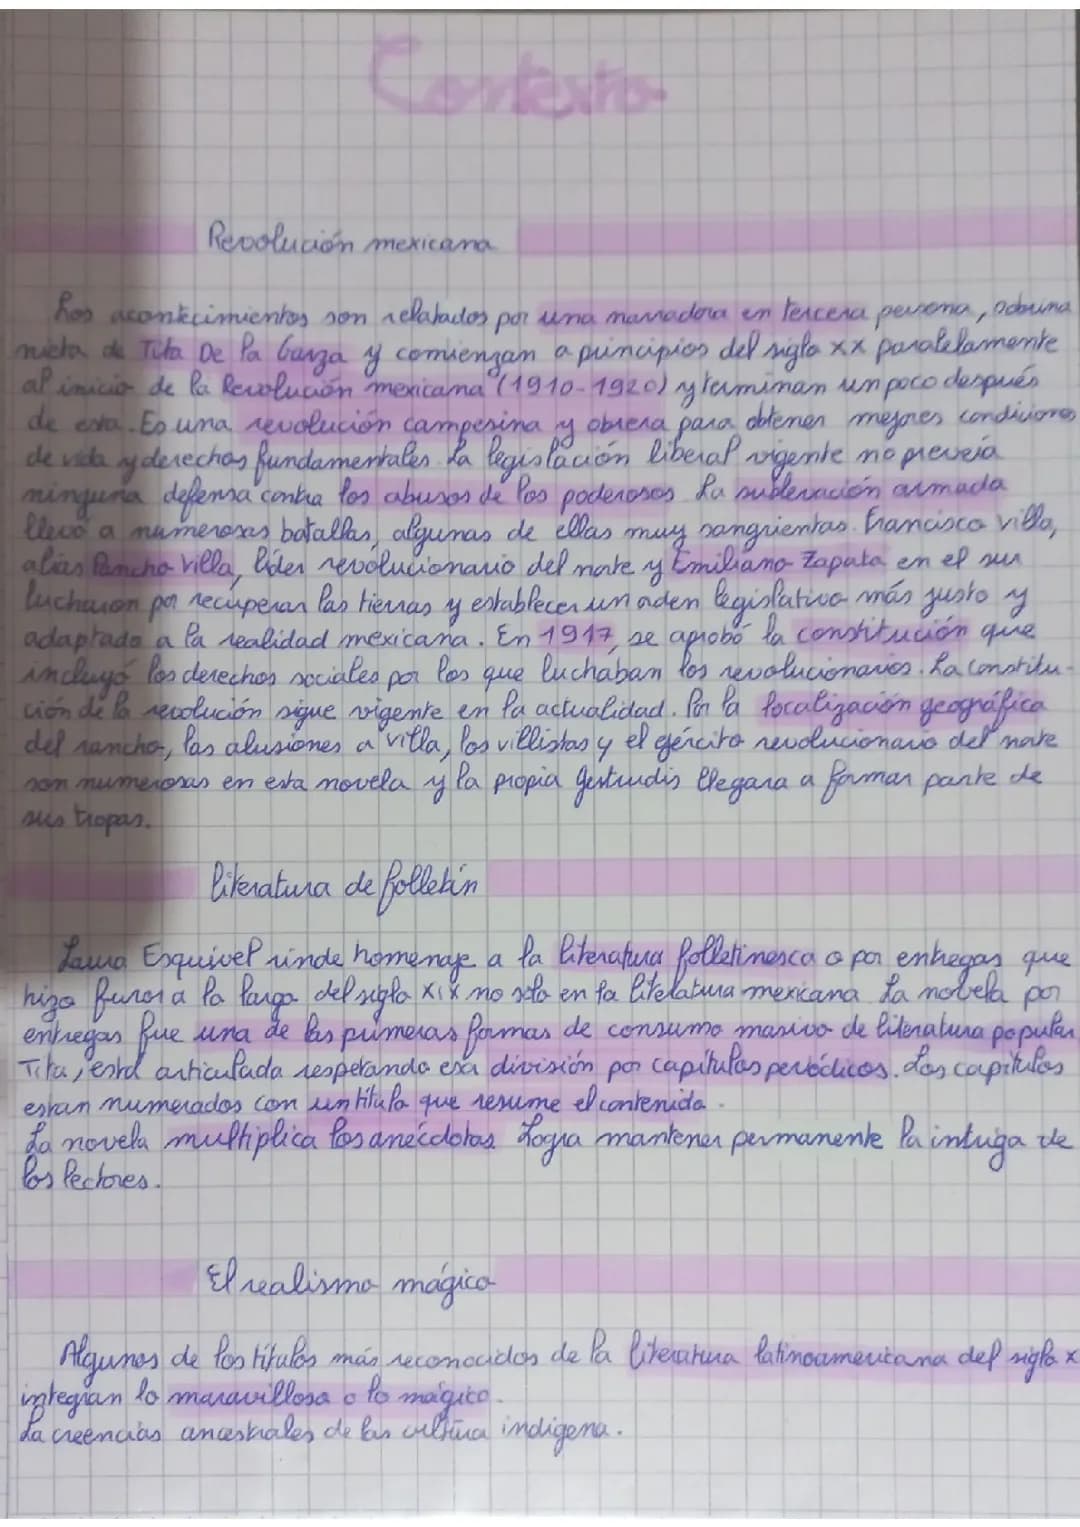 Contexto
Revolución mexicana
Los acontecimientos son relatados por una narradora en tercera persona, sobrina
nieta de Tita De la Garza y comienzan a principios del siglo XX paralelamente
al inicio de la Revolución mexicana (1910-1920) y terminan un poco después
de esta. Es una revolución campesina y obrera para obtener mejores condiciones
de vida y derechos fundamentales. La legislación liberal vigente no preveía
ninguna defensa contra los abusos de los poderosos. La sublevación armada
llevó a numerosas batallas, algunas de ellas muy sangrientas. Francisco Villa,
alias Pancho Villa, líder revolucionario del norte y Emiliano Zapata en el sur
lucharon por recuperar las tierras y establecer un orden legislativo más justo y
adaptado a la realidad mexicana. En 1917, se aprobó la constitución que
incluyó los derechos sociales por los que luchaban los revolucionarios. La constitu-
ción de la revolución sigue vigente en la actualidad. Por la localización geográfica
del rancho, las alusiones a Villa, los villistas y el ejército revolucionario del norte
son numerosas en esta novela y la propia Gertrudis llegara a formar parte de
sus tropas.
literatura de folletín
Laura Esquivel rinde homenaje a la literatura folletinesca o por entregas que
hizo furor a lo largo del siglo XIX no solo en la literatura mexicana. La novela por
entregas fue una de las primeras formas de consumo masivo de literatura popular
Tita, está articulada respetando esa división por capítulos periódicos. Los capítulos
estan numerados con un título que resume el contenido.
La novela multiplica los anécdotas. Logra mantener permanente la intriga de
los lectores.
El realismo mágico
Algunos de los títulos más reconocidos de la literatura latinoamericana del siglo X
integran lo maravilloso o lo mágico.
La creencias ancestrales de las cultura indígena.